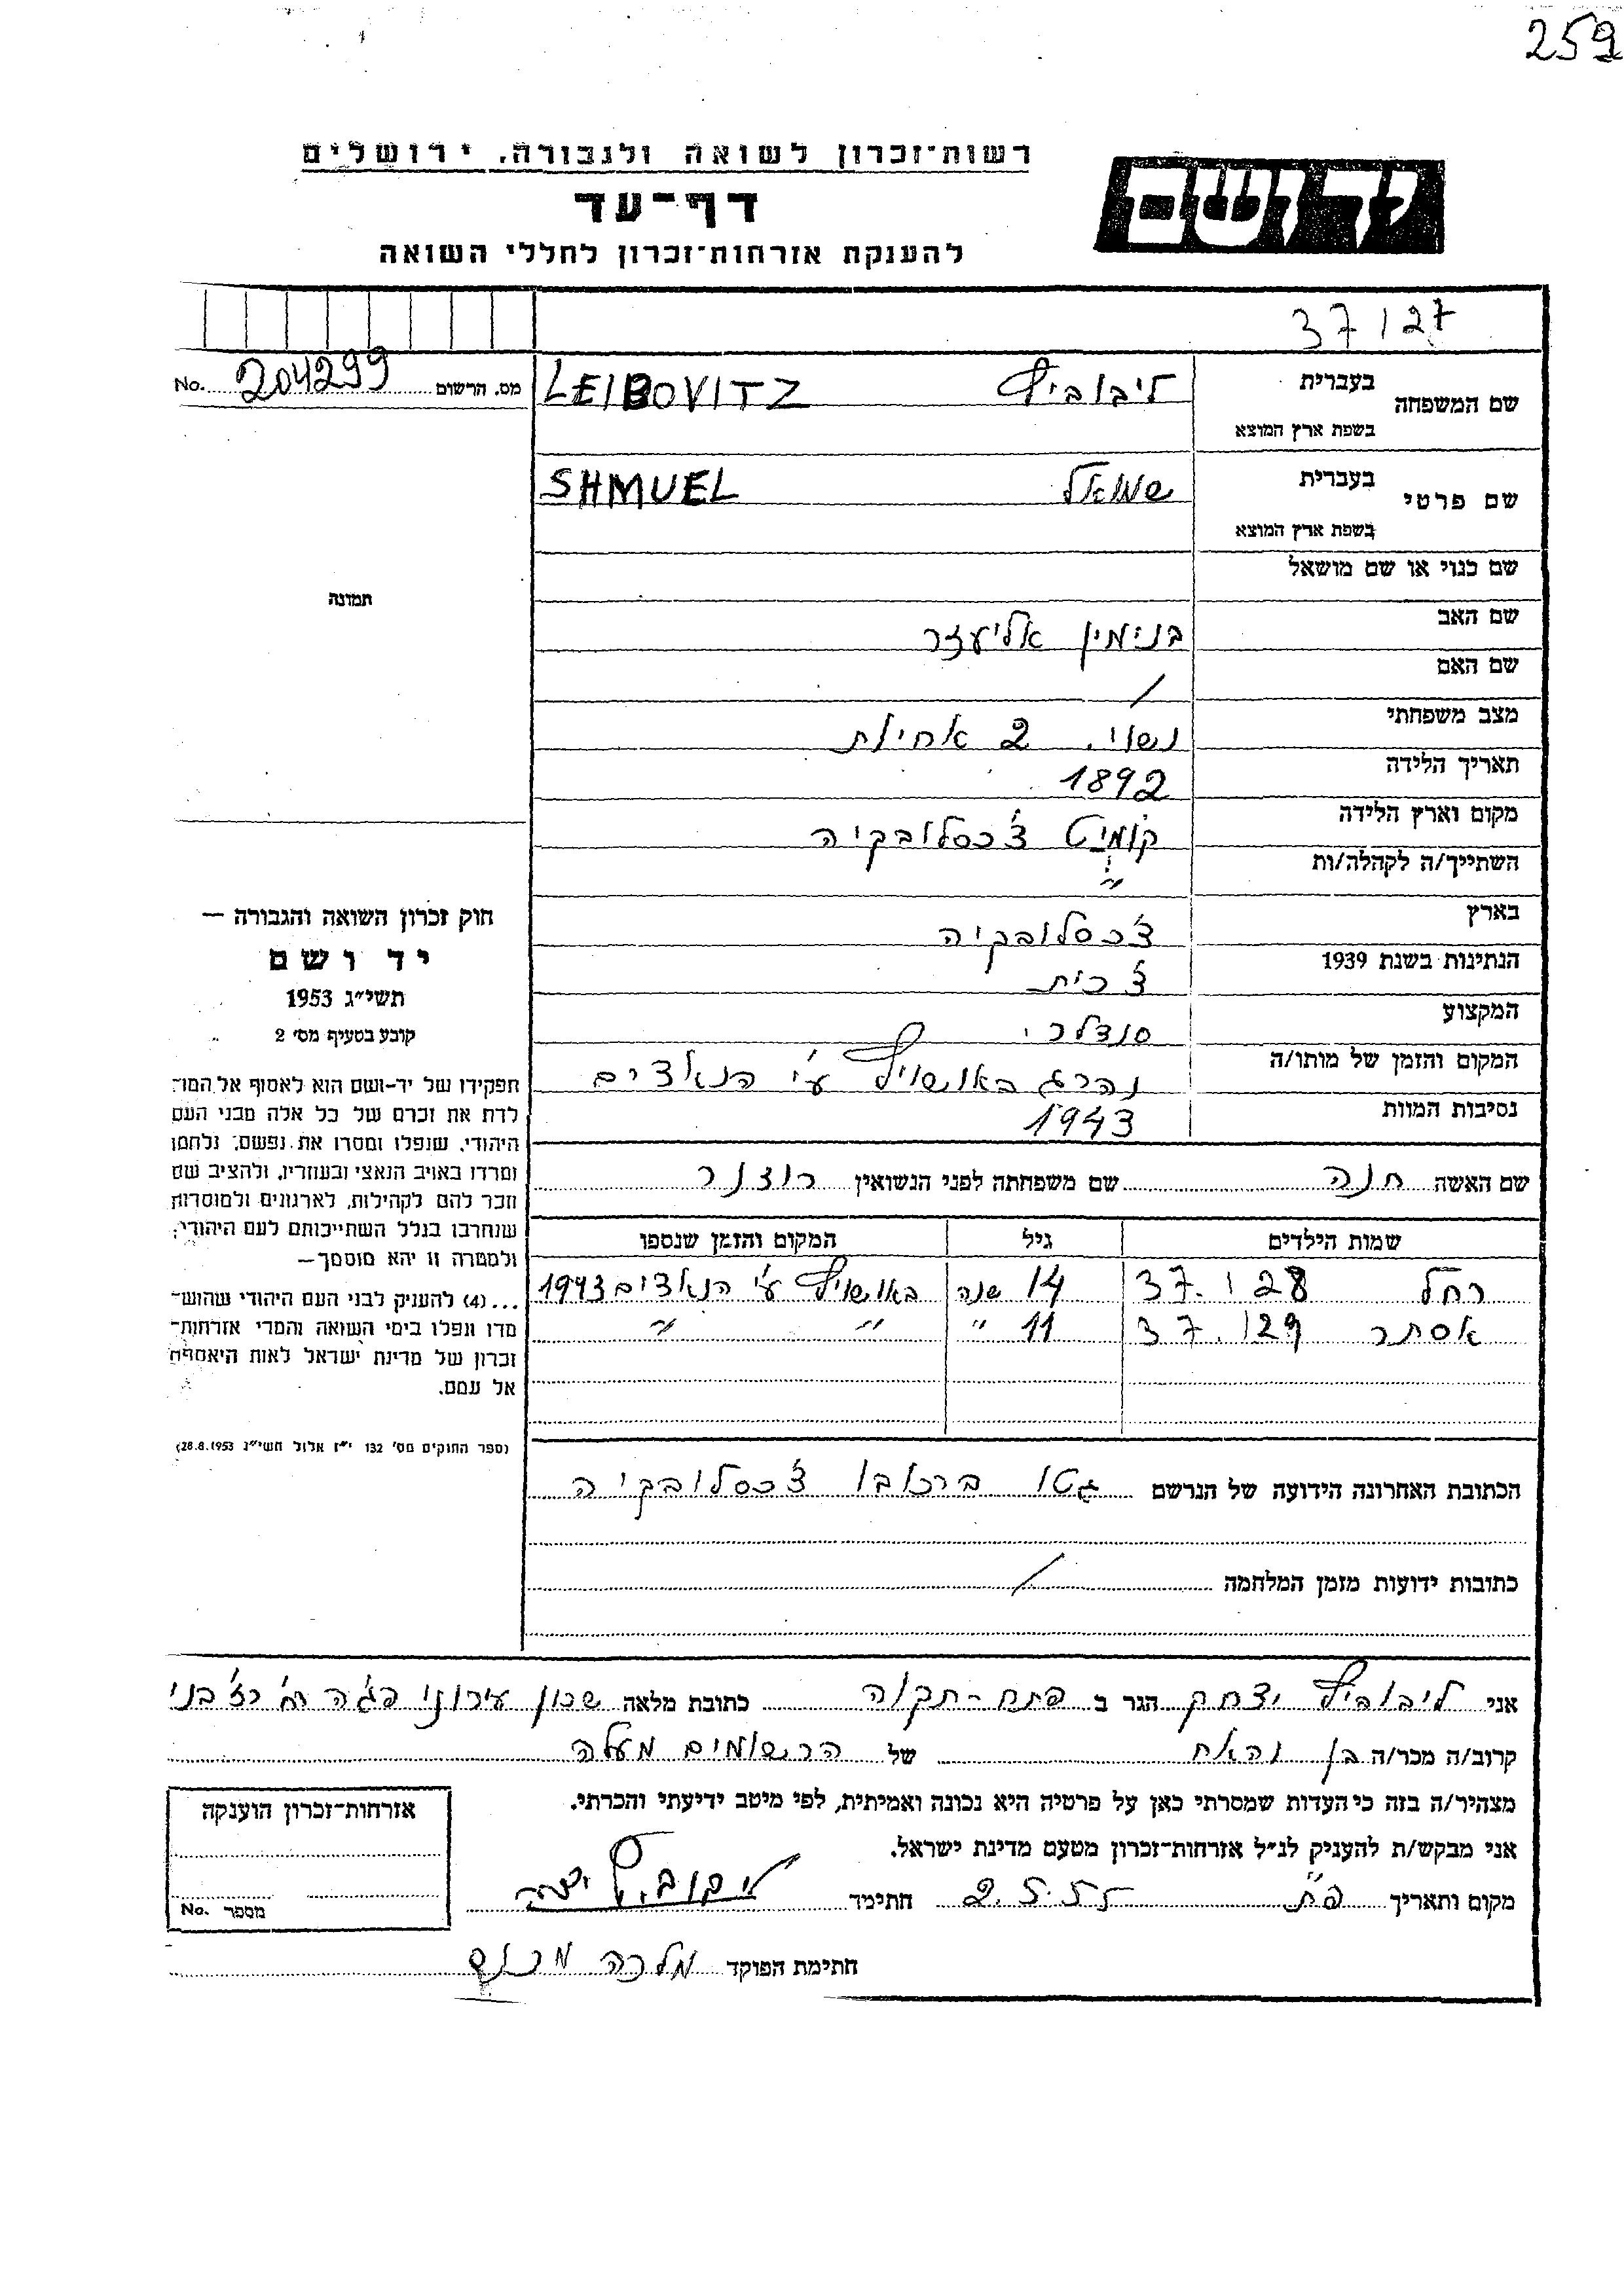 259
רשות־זכרון לשואה ולגבורה, ירושלים
יד ושם
דף־עד
להענקת אזרחות־זכרון לחללי השואה
37127
No. 204299 מס. הרשום
שם המשפחה בעברית ליבוביץ LEIBOVITZ
בשפת ארץ המוצא
שם פרטי בעברית שמואל SHMUEL
בשפת ארץ המוצא
שם כנוי או שם מושאל
תמונה
שם האב בנימין אליעזר
שם האם /
מצב משפחתי נשוי. 2 אחיות
תאריך הלידה 1892
מקום וארץ הלידה צ'כסלובקיה
השתייך/ה לקהלה/ות "
בארץ צ'כסלובקיה
הנתינות בשנת 1939 צ'כית
המקצוע סנדלר
המקום והזמן של מותו/ה נהרג באושויץ ע"י הנאצים
נסיבות המוות 1943
שם האשה חנה שם משפחתה לפני הנשואין רוזנר
שמות הילדים גיל המקום והזמן שנספו
רחל 37.128 14 שנה באושויץ ע"י הנאצים 1943
אסתר 37.129 11 " " "
חוק זכרון השואה והגבורה —
יד ושם
תשי״ג 1953
קובע בסעיף מס׳ 2
תפקידו של יד-ושם הוא לאסוף אל המו־
לדת את זכרם של כל אלה מבני העם
היהודי, שנפלו ומסרו את נפשם, נלחמו
ומרדו באויב הנאצי ובעוזריו, ולהציב שם
וזכר להם לקהילות, לארגונים ולמוסדות
שנחרבו בגלל השתייכותם לעם היהודי;
ולמטרה זו יהא מוסמך—
...(4) להעניק לבני העם היהודי שהוש־
מדו ונפלו בימי השואה והמרי אזרחות־
זכרון של מדינת ישראל לאות היאספם
אל עמם.
(ספר החוקים מס׳ 132 י״ז אלול תשי״ג 28.8.1953)
הכתובת האחרונה הידועה של הנרשם גטו ברגובו צ'כסלובקיה
כתובות ידועות מזמן המלחמה /
אני ליבוביץ יצחק הגר ב פתח-תקוה כתובת מלאה שכון עירוני
קרוב/ה מכר/ה בן והאח של הרשומים מעלה
מצהיר/ה בזה כי העדות שמסרתי כאן על פרטיה היא נכונה ואמיתית, לפי מיטב ידיעתי והכרתי.
אני מבקש/ת להעניק לנ״ל אזרחות־זכרון מטעם מדינת ישראל.
מקום ותאריך פ"ת 2.5.55 חתימה ליבוביץ
אזרחות־זכרון הוענקה
מספר No.
חתימת הפוקד מלכה